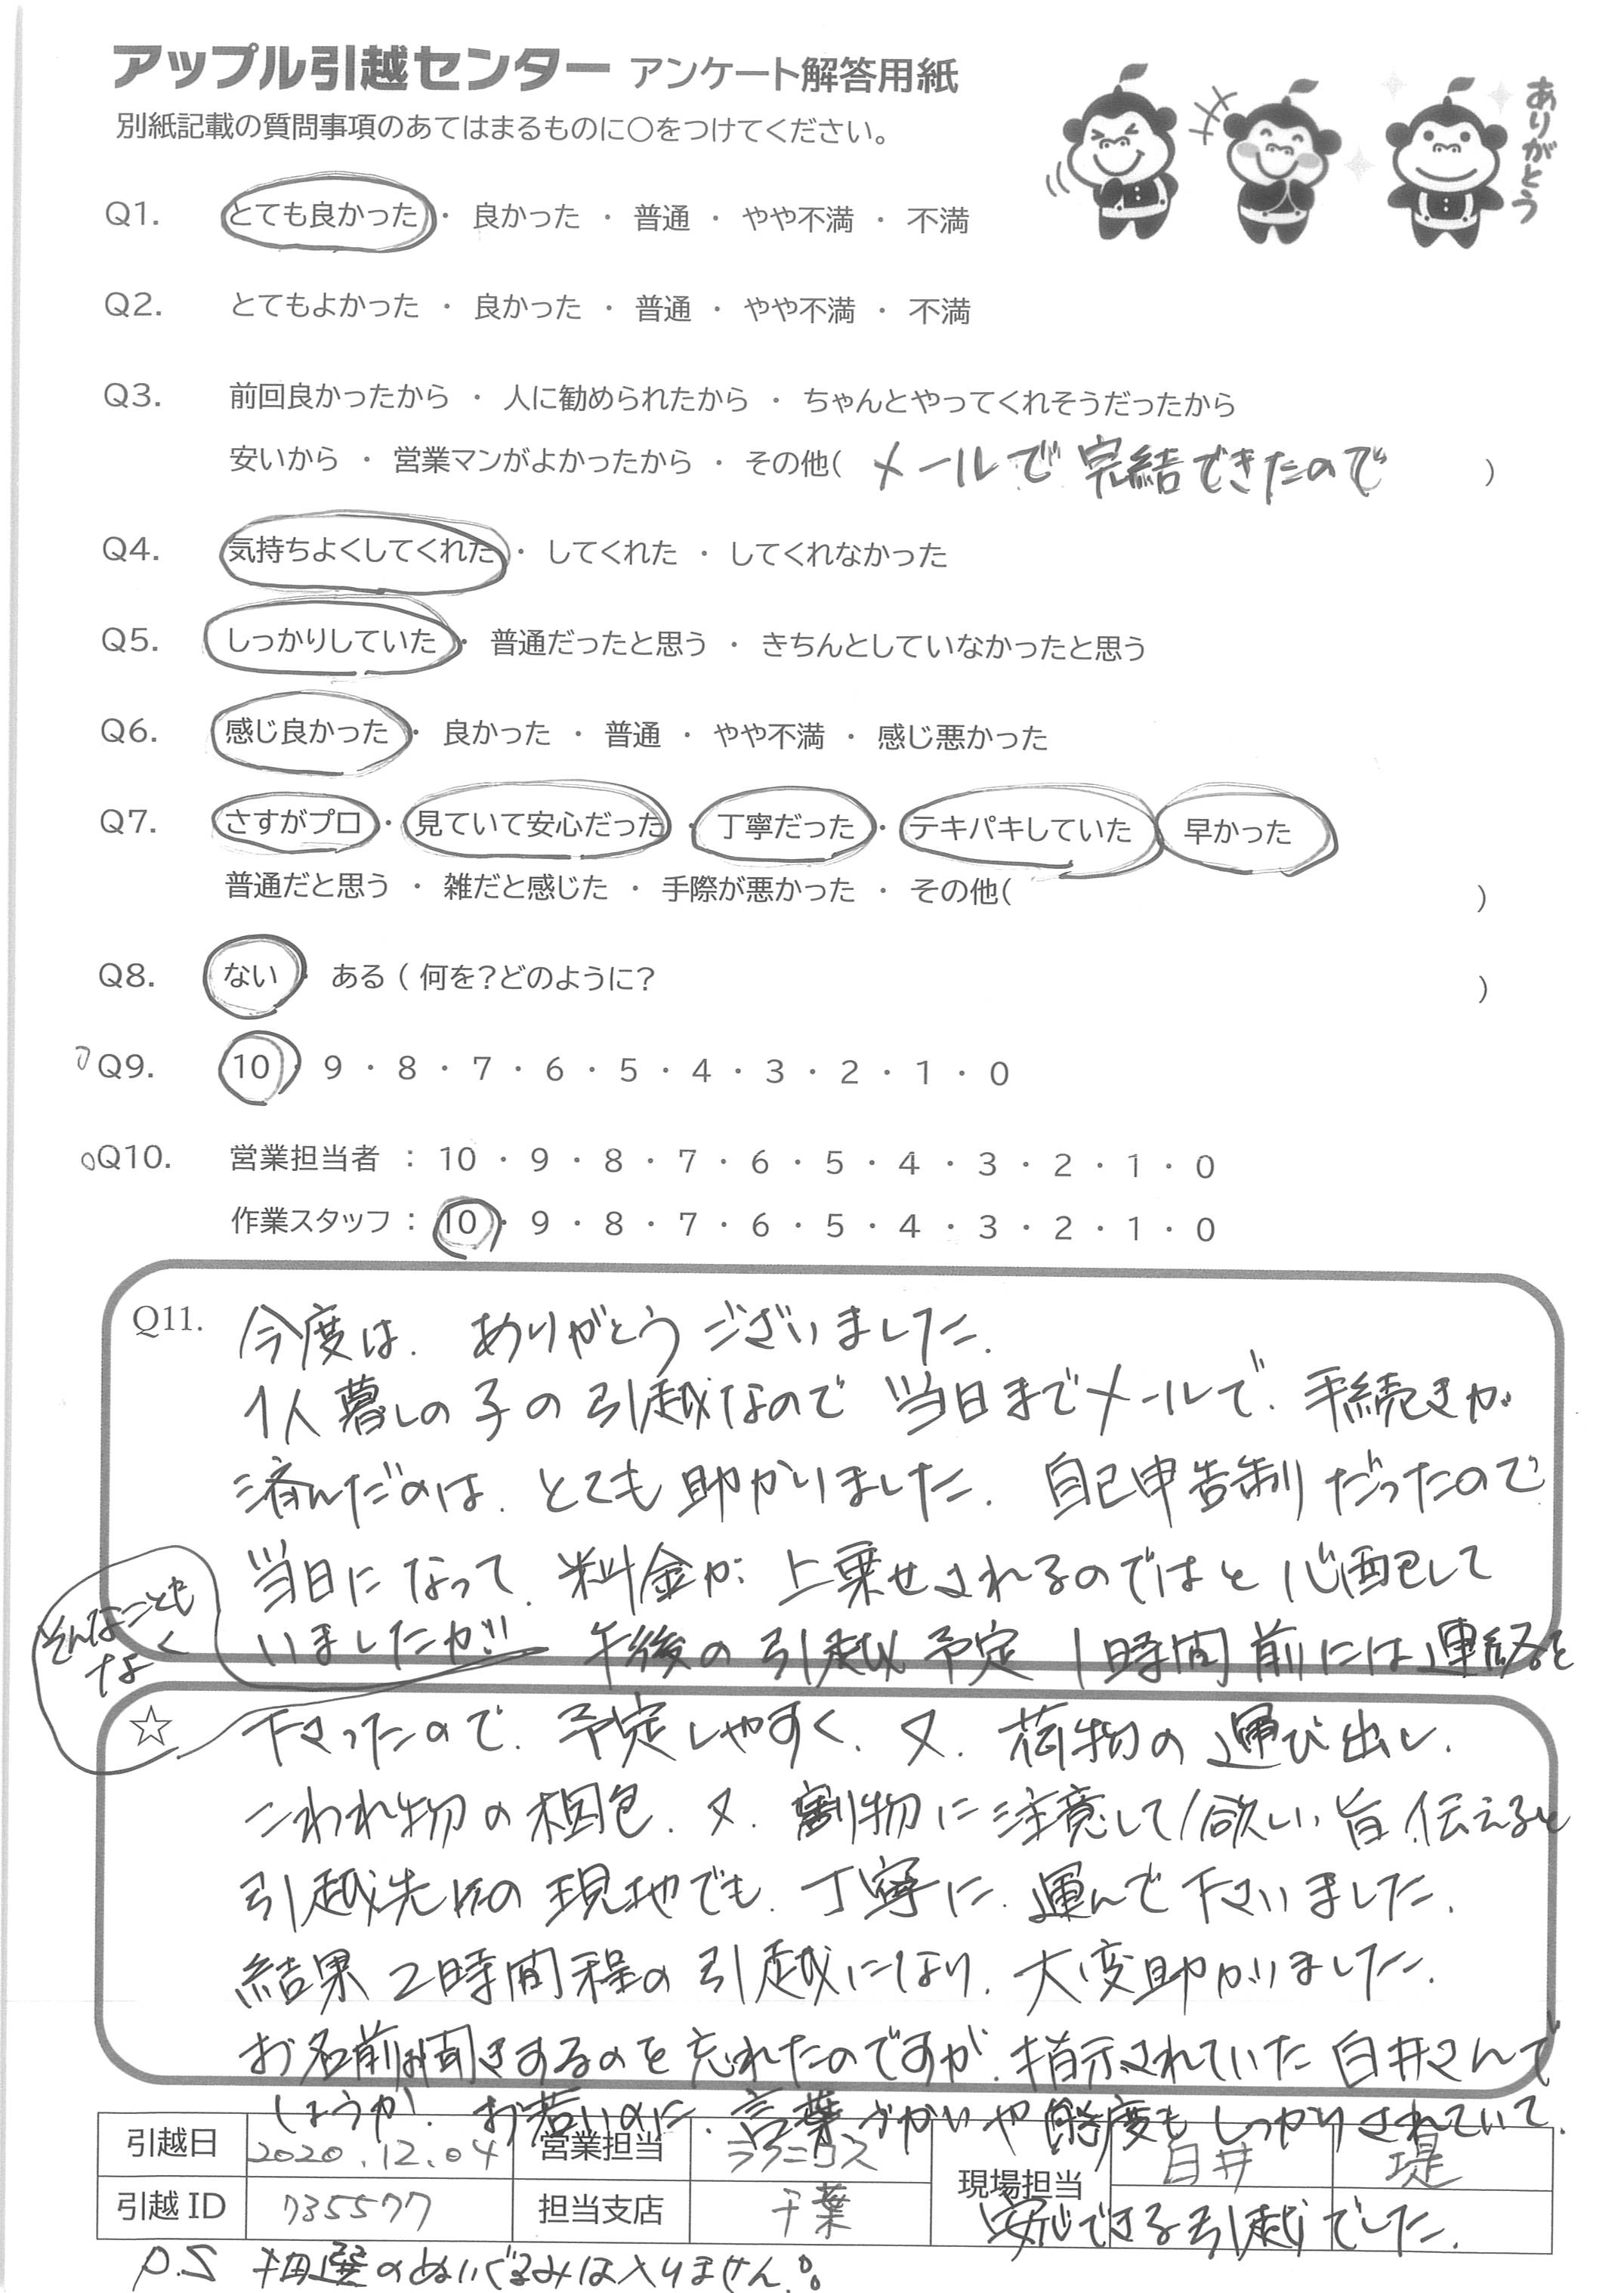 アップル引越センター アンケート解答用紙
別紙記載の質問事項のあてはまるものに○をつけてください。
ありがとう
Q1. とても良かった ・ 良かった ・ 普通 ・ やや不満 ・ 不満
Q2. とてもよかった ・ 良かった ・ 普通 ・ やや不満 ・ 不満
Q3. 前回良かったから ・ 人に勧められたから ・ ちゃんとやってくれそうだったから
安いから ・ 営業マンがよかったから ・ その他( メールで完結できたので )
Q4. 気持ちよくしてくれた ・ してくれた ・ してくれなかった
Q5. しっかりしていた ・ 普通だったと思う ・ きちんとしていなかったと思う
Q6. 感じ良かった ・ 良かった ・ 普通 ・ やや不満 ・ 感じ悪かった
Q7. さすがプロ ・ 見ていて安心だった ・ 丁寧だった ・ テキパキしていた 早かった
普通だと思う ・ 雑だと感じた ・ 手際が悪かった ・ その他( )
Q8. ない ・ ある ( 何を?どのように? )
Q9. 10 ・ 9 ・ 8 ・ 7 ・ 6 ・ 5 ・ 4 ・ 3 ・ 2 ・ 1 ・ 0
Q10. 営業担当者 : 10 ・ 9 ・ 8 ・ 7 ・ 6 ・ 5 ・ 4 ・ 3 ・ 2 ・ 1 ・ 0
作業スタッフ : 10 ・ 9 ・ 8 ・ 7 ・ 6 ・ 5 ・ 4 ・ 3 ・ 2 ・ 1 ・ 0
Q11. 今度は、ありがとうございました。
1人暮しの子の引越なので当日までメールで、手続きが
済んだのは、とても助かりました。自己申告制だったので
当日になって、料金が上乗せされるのではと心配して
いましたが!! 午後の引越予定1時間前には連絡を
そんなことも
なく
☆ 下さったので、予定しやすく、又、荷物の運び出し、
こわれ物の梱包、又、割物に注意して欲しい旨、伝えると
引越先の現地でも、丁寧に、運んで下さいました。
結果2時間程の引越になり、大変助かりました。
お名前お聞きするのを忘れたのですが、指示されていた白井さんで
しょうか、お若いのに、言葉づかいや態度もしっかりされていて、
安心できる引越でした。
引越日 2020.12.04 営業担当 ラクニコス 現場担当 白井 堤
引越 ID 735577 担当支店 千葉
P.S 抽選のぬいぐるみは入りません。